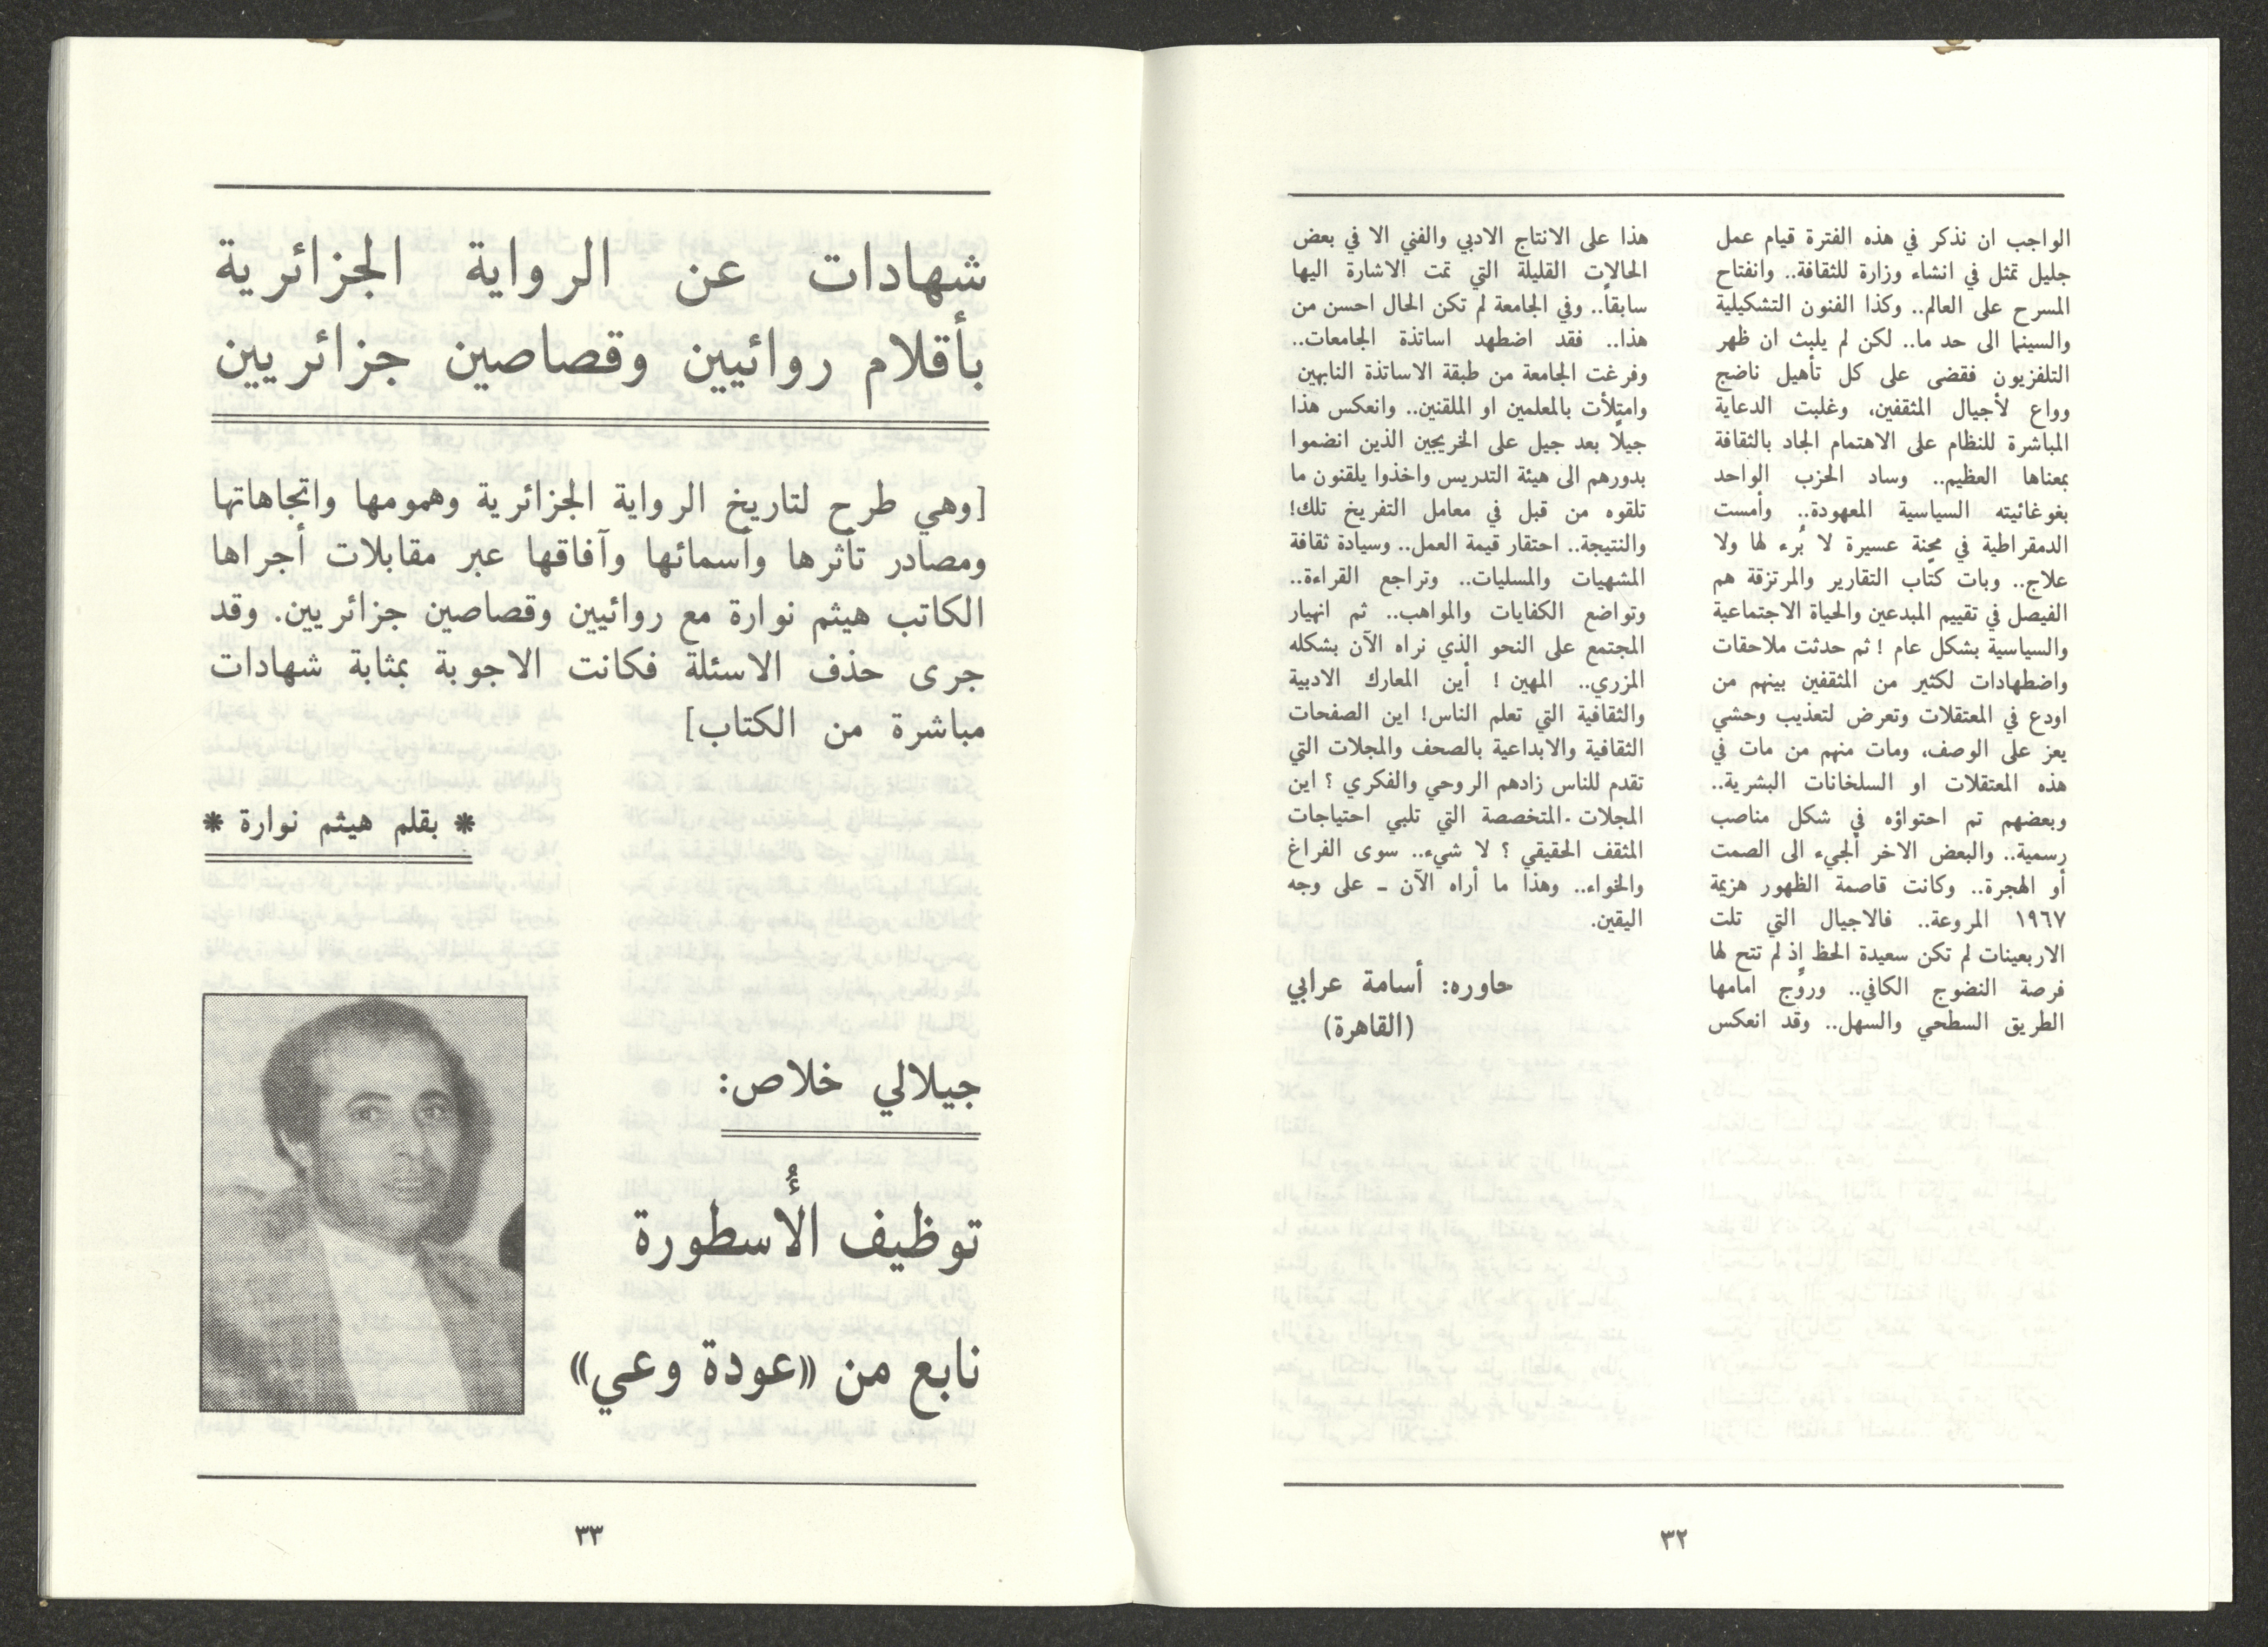 الواجب ان نذكر في هذه الفترة قيام عمل
جليل تمثل في انشاء وزارة للثقافة.. وانفتاح
المسرح على العالم.. وكذا الفنون التشكيلية
والسينما الى حد ما.. لكن لم يلبث ان ظهر
التلفزيون فقضى على كل تأهيل ناضج
وواع لأجيال المثقفين، وغلبت الدعاية
المباشرة للنظام على الاهتمام الجاد بالثقافة
بمعناها العظيم.. وساد الحزب الواحد
بغوغائيته السياسية المعهودة.. وأمست
الدمقراطية في محنة عسيرة لا بُرء لها ولا
علاج.. وبات كتّاب التقارير والمرتزقة هم
الفيصل في تقييم المبدعين والحياة الاجتماعية
والسياسية بشكل عام ! ثم حدثت ملاحقات
واضطهادات لكثير من المثقفين بينهم من
اودع في المعتقلات وتعرض لتعذيب وحشي
يعز على الوصف، ومات منهم من مات في
هذه المعتقلات او السلخانات البشرية..
وبعضهم تم احتواؤه في شكل مناصب
رسمية.. والبعض الاخر ألجيء الى الصمت
أو الهجرة.. وكانت قاصمة الظهور هزيمة
١٩٦٧ المروعة.. فالاجيال التي تلت
الاربعينات لم تكن سعيدة الحظ إذ لم تتح لها
فرصة النضوج الكافي.. وروّج امامها
الطريق السطحي والسهل.. وقد انعكس
هذا على الانتاج الادبي والفني الا في بعض
الحالات القليلة التي تمت الاشارة اليها
سابقاً.. وفي الجامعة لم تكن الحال احسن من
هذا.. فقد اضطهد اساتذة الجامعات..
وفرغت الجامعة من طبقة الاساتذة النابهين
وامتلأت بالمعلمين او الملقنين.. وانعكس هذا
جيلًا بعد جيل على الخريجين الذين انضموا
بدورهم الى هيئة التدريس واخذوا يلقنون ما
تلقوه من قبل في معامل التفريخ تلك!
والنتيجة.. احتقار قيمة العمل.. وسيادة ثقافة
المشهيات والمسليات.. وتراجع القراءة..
وتواضع الكفايات والمواهب.. ثم انهيار
المجتمع على النحو الذي نراه الآن بشكله
المزري.. المهين ! أين المعارك الادبية
والثقافية التي تعلم الناس! اين الصفحات
الثقافية والابداعية بالصحف والمجلات التي
تقدم للناس زادهم الروحي والفكري ؟ اين
المجلات المتخصصة التي تلبي احتياجات
المثقف الحقيقي ؟ لا شيء.. سوى الفراغ
والخواء.. وهذا ما أراه الآن ـ على وجه
اليقين.
حاوره: أسامة عرابي
(القاهرة)
٣٢
شهادات عن الرواية الجزائرية
بأقلام روائيين وقصاصين جزائريين
[وهي طرح لتاريخ الرواية الجزائرية وهمومها واتجاهاتها
ومصادر تأثرها وأسمائها وآفاقها عبر مقابلات أجراها
الكاتب هيثم نوارة مع روائيين وقصاصين جزائريين. وقد
جرى حذف الاسئلة فكانت الاجوبة بمثابة شهادات
مباشرة من الكتاب]
* بقلم هيثم نوارة *
جيلالي خلاص:
توظيف الأسطورة
نابع من «عودة وعي»
٣٣